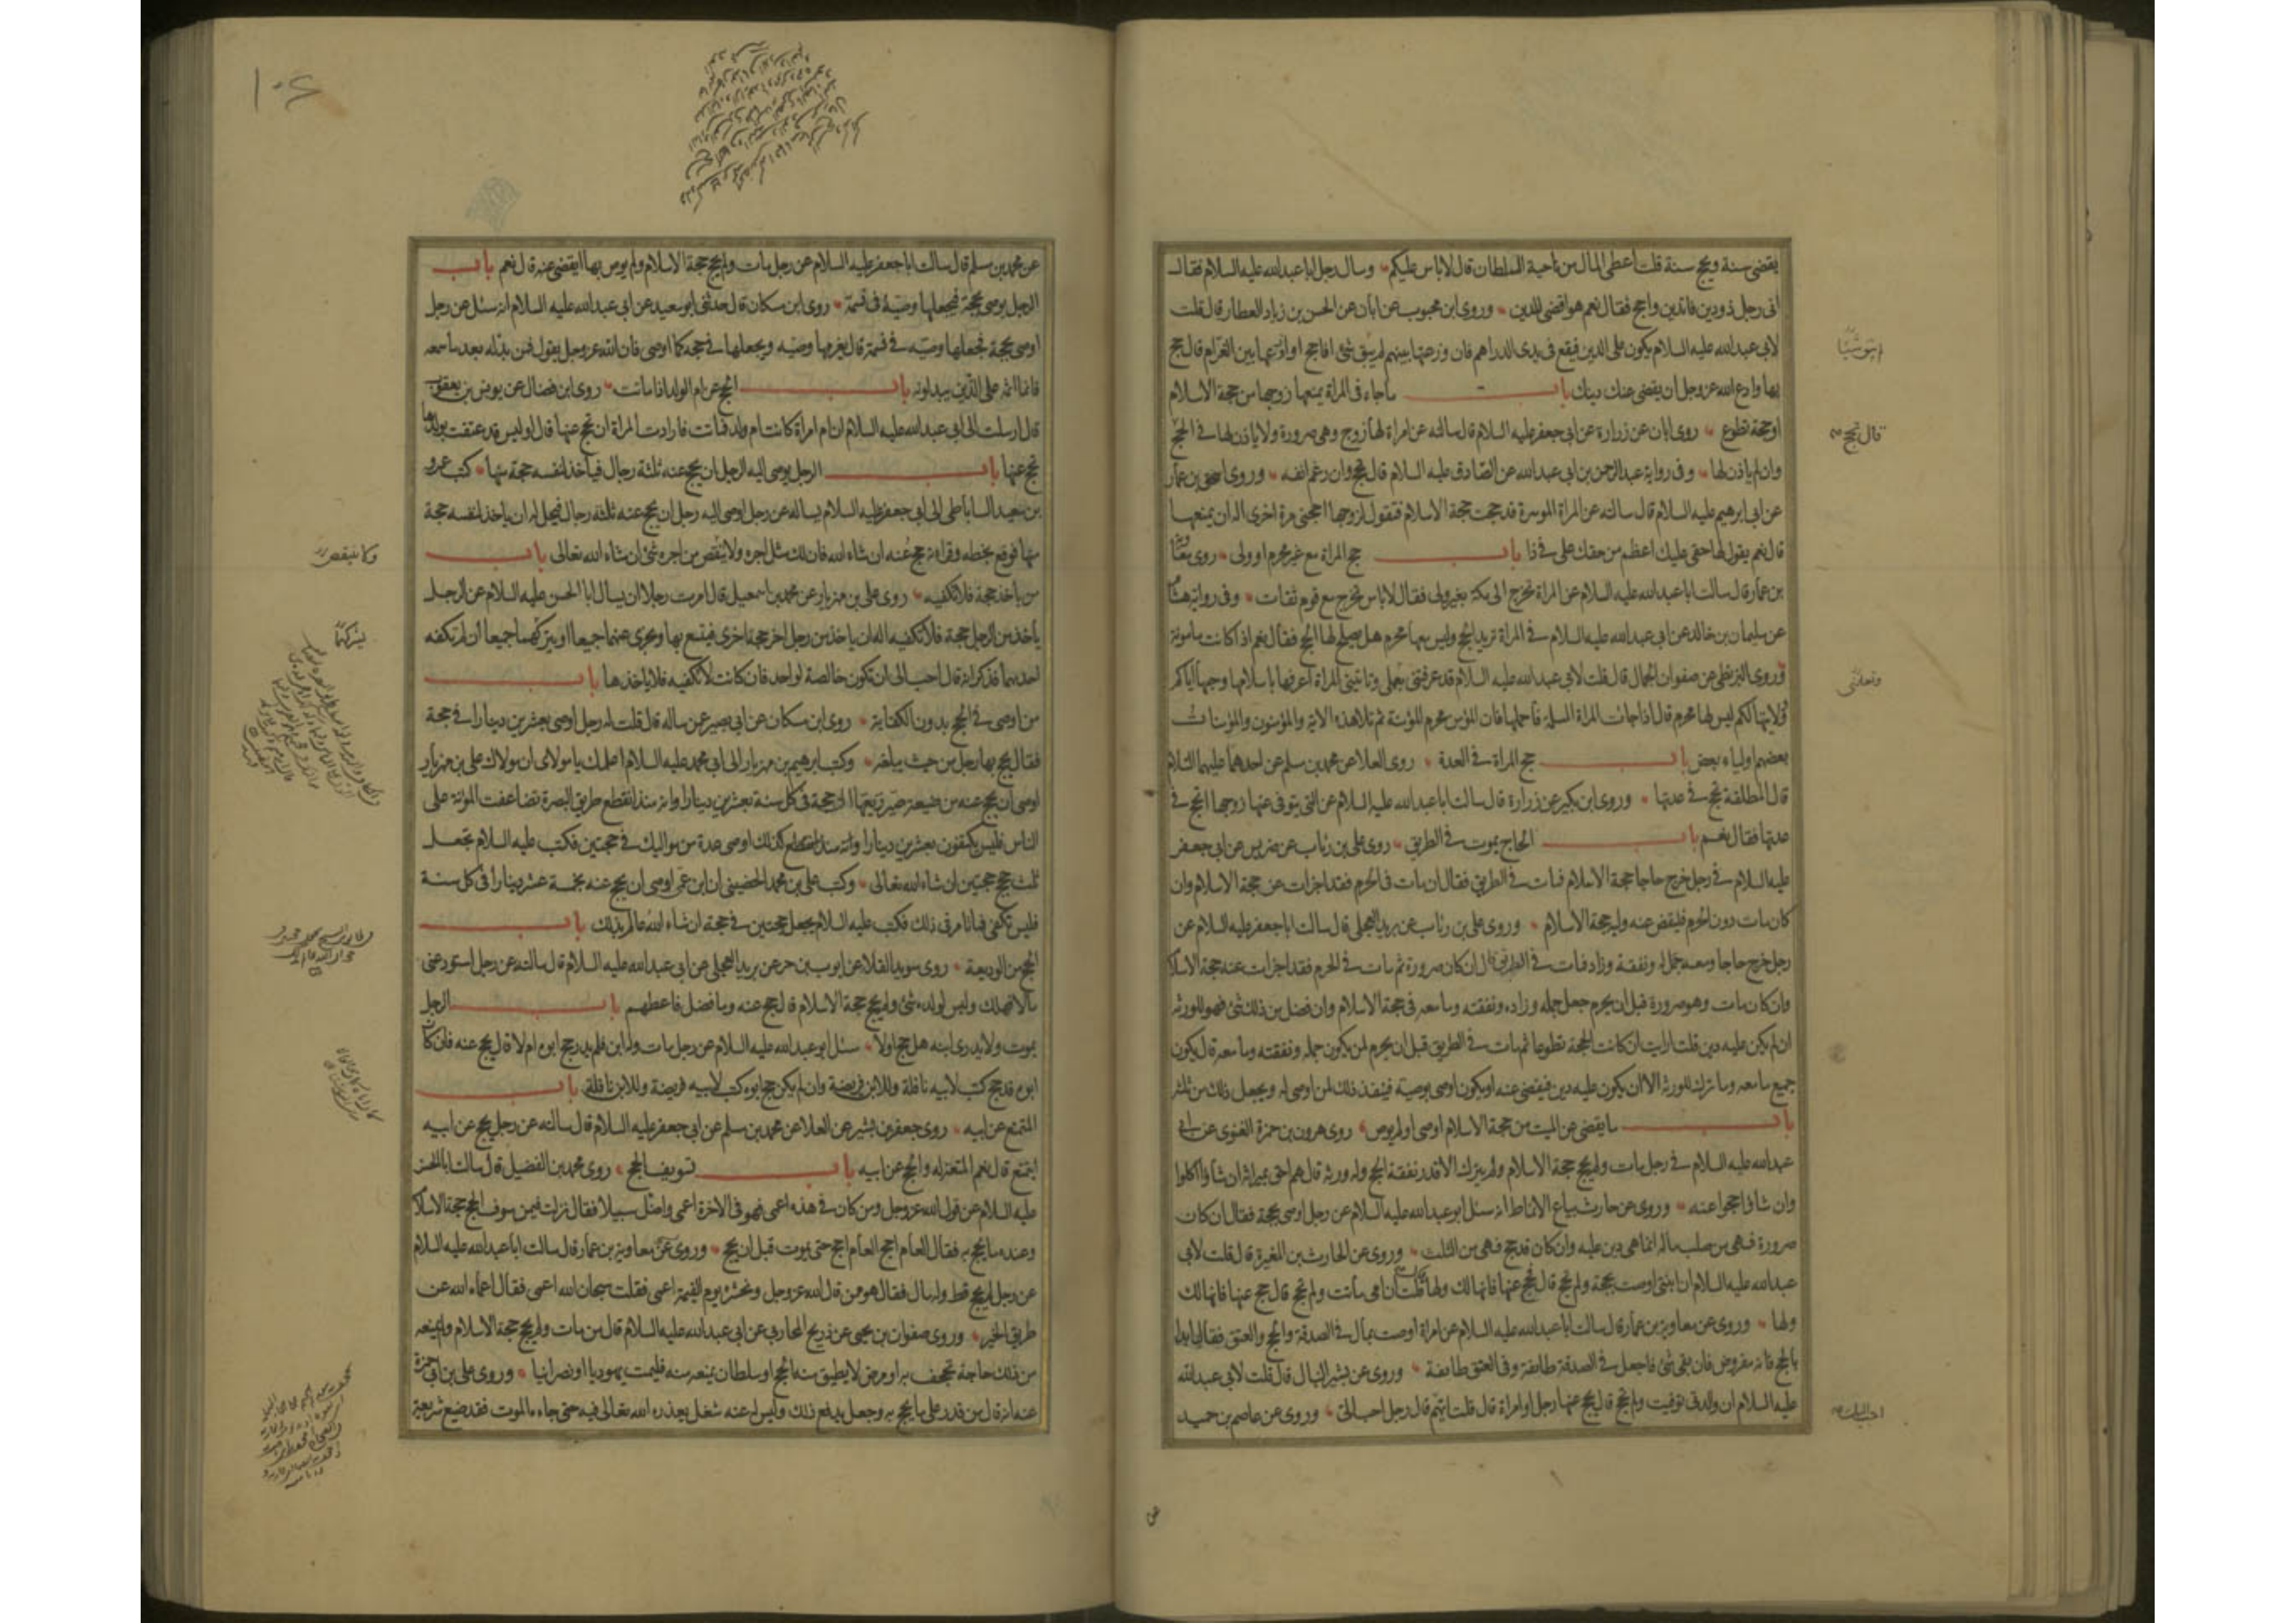 يقضى سنة ويحج سنة قلت أعطى المال من ناحية السلطان قال لا باس عليكم وسال رجل ابا عبدالله عليه السلام فقال
انى رجل ذو دين فاتدين واحج فقال نعم هو اقضى للدين وروى ابن محبوب عن ابان عن الحسن بن زياد العطار قال قلت
لابى عبدالله عليه السلام يكون على الدين فيقع فى يدى الدراهم فان وزعتها بينهم لم يبق شئ افاحج او اوزعها بين الغرام قال حج
بها وادع الله عزوجل ان يقضى عنك دينك باب ماجاء فى المراة يمنعها زوجها من حجة الاسلام
او حجة تطوع روى ابان عن زرارة عن ابى جعفر عليه السلام قال سالته عن امراة لها زوج وهى صرورة ولا ياذن لها فى الحج
وان لم ياذن لها وفى رواية عبدالرحمن بن ابى عبدالله عن الصادق عليه السلام قال تحج وان رغم انفه وروى اسحق بن عمار
عن ابى ابرهيم عليه السلام قال سالته عن المراة الموسرة قد حجت حجة الاسلام فتقول لزوجها احجنى مرة اخرى اله ان يمنعها
قال نعم يقول لها حقى عليك اعظم من حقك على فى ذا باب حج المراة مع غير محرم او ولى روى معوية
بن عمار قال سالت ابا عبدالله عليه السلام عن المراة تخرج الى مكة بغير ولى فقال لا باس تخرج مع قوم ثقات وفى رواية هشام
عن سليمان بن خالد عن ابى عبدالله عليه السلام فى المراة تريد الحج وليس معها محرم هل يصلح لها الحج فقال نعم اذا كانت مامونة
وروى البزنطى عن صفوان الجمال قال قلت لابى عبدالله عليه السلام قد عرفتنى بعملى وتاتينى المراة اعرفها باسلامها وحبها اياكم
وولايتها لكم ليس لها محرم قال اذا جائت المراة المسلمة فاحملها فان المؤمن محرم للمؤمنة ثم تلا هذه الاية والمؤمنون والمؤمنات
بعضهم اولياء بعض باب حج المراة فى العدة روى العلا عن محمد بن مسلم عن احدهما عليهما السلام
قال المطلقة تحج فى عدتها وروى ابن بكير عن زرارة قال سالت ابا عبدالله عليه السلام عن التى يتوفى عنها زوجها اتحج فى
عدتها فقال نعم باب الحاج يموت فى الطريق روى على بن رئاب عن ضريس عن ابى جعفر
عليه السلام فى رجل خرج حاجا حجة الاسلام فمات فى الطريق فقال ان مات فى الحرم فقد اجزات عن حجة الاسلام وان
كان مات دون الحرم فليقض عنه وليه حجة الاسلام وروى على بن رئاب عن بريد العجلى قال سالت ابا جعفر عليه السلام عن
رجل خرج حاجا ومعه جمل له ونفقة وزاد فمات فى الطريق قال ان كان صرورة ثم مات فى الحرم فقد اجزات عنه حجة الاسلام
وان كان مات وهو صرورة قبل ان يحرم جعل جمله وزاده ونفقته وما معه فى حجة الاسلام وان فضل من ذلك شئ فهو للورثه
ان لم يكن عليه دين قلت ارايت ان كانت الحجة تطوعا ثم مات فى الطريق قبل ان يحرم لمن يكون جمله ونفقته وما معه قال يكون
جميع ما معه وما ترك للورثه الا ان يكون عليه دين فيقضى عنه او يكون اوصى بوصية فينفذ ذلك لمن اوصى له ويجعل ذلك من ثلثه
باب ما يقضى عن الميت من حجة الاسلام اوصى او لم يوص روى هرون بن حمزة الغنوى عن ابى
عبدالله عليه السلام فى رجل مات ولم يحج حجة الاسلام ولم يترك الا قدر نفقة الحج وله ورثه قال هم احق بميراثه ان شاؤا اكلوا
وان شاؤا احجوا عنه وروى عن حارث بياع الانماط انه سئل ابو عبدالله عليه السلام عن رجل اوصى بحجة فقال ان كان
صرورة فهى من صلب ماله انما هى دين عليه وان كان قد حج فهى من الثلث وروى عن الحارث بن المغيرة قال قلت لابى
عبدالله عليه السلام ان ابنتى اوصت بحجة ولم تحج قال فحج عنها فانها لك ولها قلت ان امى ماتت ولم تحج قال حج عنها فانها لك
ولها وروى عن معاوية بن عمار قال سالت ابا عبدالله عليه السلام عن امراة اوصت بمال فى الصدقة والحج والعتق فقال ابدا
بالحج فانه مفروض فان بقى شئ فاجعل فى الصدقة طائفة وفى العتق طائفة وروى عن بشير النبال قال قلت لابى عبدالله
عليه السلام ان والدتى توفيت ولم تحج قال يحج عنها رجل او امراة قال قلت ايهم قال رجل احب الى وروى عن عاصم بن حميد
قال تحج
عن محمد بن مسلم قال سالت ابا جعفر عليه السلام عن رجل مات ولم يحج حجة الاسلام ولم يوص بها ايقضى عنه قال نعم باب
الرجل يوصى بحجة فيجعلها وصيه فى نسمة روى ابن مسكان قال حدثنى ابو سعيد عن ابى عبدالله عليه السلام انه سئل عن رجل
اوصى بحجة فجعلها وصيه فى نسمة قال يغرمها وصيه ويجعلها فى حجه كما اوصى فان الله عزوجل يقول فمن بدله بعد ما سمعه
فانما اثمه على الذين يبدلونه باب الحج عن ام الولد اذا ماتت روى ابن فضال عن يونس بن يعقوب
قال ارسلت الى ابى عبدالله عليه السلام ان ام امراة كانت ام ولد فماتت فارادت المراة ان تحج عنها قال اوليس قد عتقت بولدها
تحج عنها باب الرجل يوصى اليه الرجل ان يحج عنه ثلثة رجال فياخذ لنفسه حجة منها كتب عمرو
بن سعيد الساباطى الى ابى جعفر عليه السلام يساله عن رجل اوصى اليه رجل ان يحج عنه ثلثة رجال فيحل له ان ياخذ لنفسه حجة
منها فوقع بخطه وقراته حج عنه ان شاء الله فان لك مثل اجره ولا ينقص من اجره شئ ان شاء الله تعالى باب
من ياخذ حجة فلا تكفيه روى على بن مهزيار عن محمد بن اسمعيل قال امرت رجلا ان يسال ابا الحسن عليه السلام عن الرجل
ياخذ من الرجل حجة فلا تكفيه اله ان ياخذ من رجل اخر حجة اخرى فيتسع بها ويجزى عنهما جميعا او يتركهما جميعا ان لم تكفه
احديهما فذكر انه قال احب الى ان تكون خالصة لواحد فان كانت لا تكفيه فلا ياخذها باب
من اوصى فى الحج بدون الكفاية روى ابن مسكان عن ابى بصير عمن ساله قال قلت له رجل اوصى بعشرين دينارا فى حجة
فقال يحج بها رجل من حيث يبلغه وكتب ابرهيم بن مهزيار الى ابى محمد عليه السلام اعلمك يا مولاى ان مولاك على بن مهزيار
اوصى ان يحج عنه من ضيعة صير ربعها الى حجة فى كل سنة بعشرين دينارا وانه منذ انقطع طريق البصرة تضاعفت المؤنة على
الناس فليس يكتفون بعشرين دينارا وكذلك اوصى عدة من مواليك فى حجتين فكتب عليه السلام تجعل
ثلث حجج حجتين ان شاء الله تعالى وكتب على بن محمد الحضينى ان ابن عمى اوصى ان يحج عنه بخمسة عشر دينارا فى كل سنة
فليس تكفى فما تامرنى ذلك فكتب عليه السلام يجعل حجتين فى حجة ان شاء الله عالم بذلك باب
الحج من الوديعة روى سويد القلا عن ايوب بن حر عن بريد العجلى عن ابى عبدالله عليه السلام قال سالته عن رجل استودعنى
مالا فهلك وليس لولده شئ ولم يحج حجة الاسلام قال حج عنه وما فضل فاعطهم باب الرجل
يموت ولا يدرى ابنه هل حج اولا سئل ابو عبدالله عليه السلام عن رجل مات وله ابن فلم يدر حج ابوه ام لا قال يحج عنه فان كان
ابوه قد حج كتب لابيه نافلة وللابن فريضة وان لم يكن حج ابوه كتب لابيه فريضة وللابن نافلة باب
المتمتع عن ابيه روى جعفر بن بشير عن العلا عن محمد بن مسلم عن ابى جعفر عليه السلام قال سالته عن رجل يحج عن ابيه
ايتمتع قال نعم المتعة له والحج عن ابيه باب تسويف الحج روى محمد بن الفضيل قال سالت ابا الحسن
عليه السلام عن قول الله عزوجل ومن كان فى هذه اعمى فهو فى الاخرة اعمى واضل سبيلا فقال نزلت فيمن سوف الحج حجة الاسلام
وعنده ما يحج به فقال العام احج العام احج حتى يموت قبل ان يحج وروى عن معاوية بن عمار قال سالت ابا عبدالله عليه السلام
عن رجل لم يحج قط وله مال فقال هو ممن قال الله عزوجل ونحشره يوم القيمة اعمى فقلت سبحان الله اعمى فقال اعماه الله عن
طريق الخير وروى صفوان بن يحيى عن ذريح المحاربى عن ابى عبدالله عليه السلام قال من مات ولم يحج حجة الاسلام ولم يمنعه
من ذلك حاجة تجحف به او مرض لا يطيق منه الحج او سلطان يمنعه منه فليمت يهوديا او نصرانيا وروى على بن ابى حمزة
عنه انه قال من قدر على ما يحج به وجعل يدفع ذلك وليس له عنه شغل يعذره الله تعالى فيه حتى جاءه الموت فقد ضيع شريعة